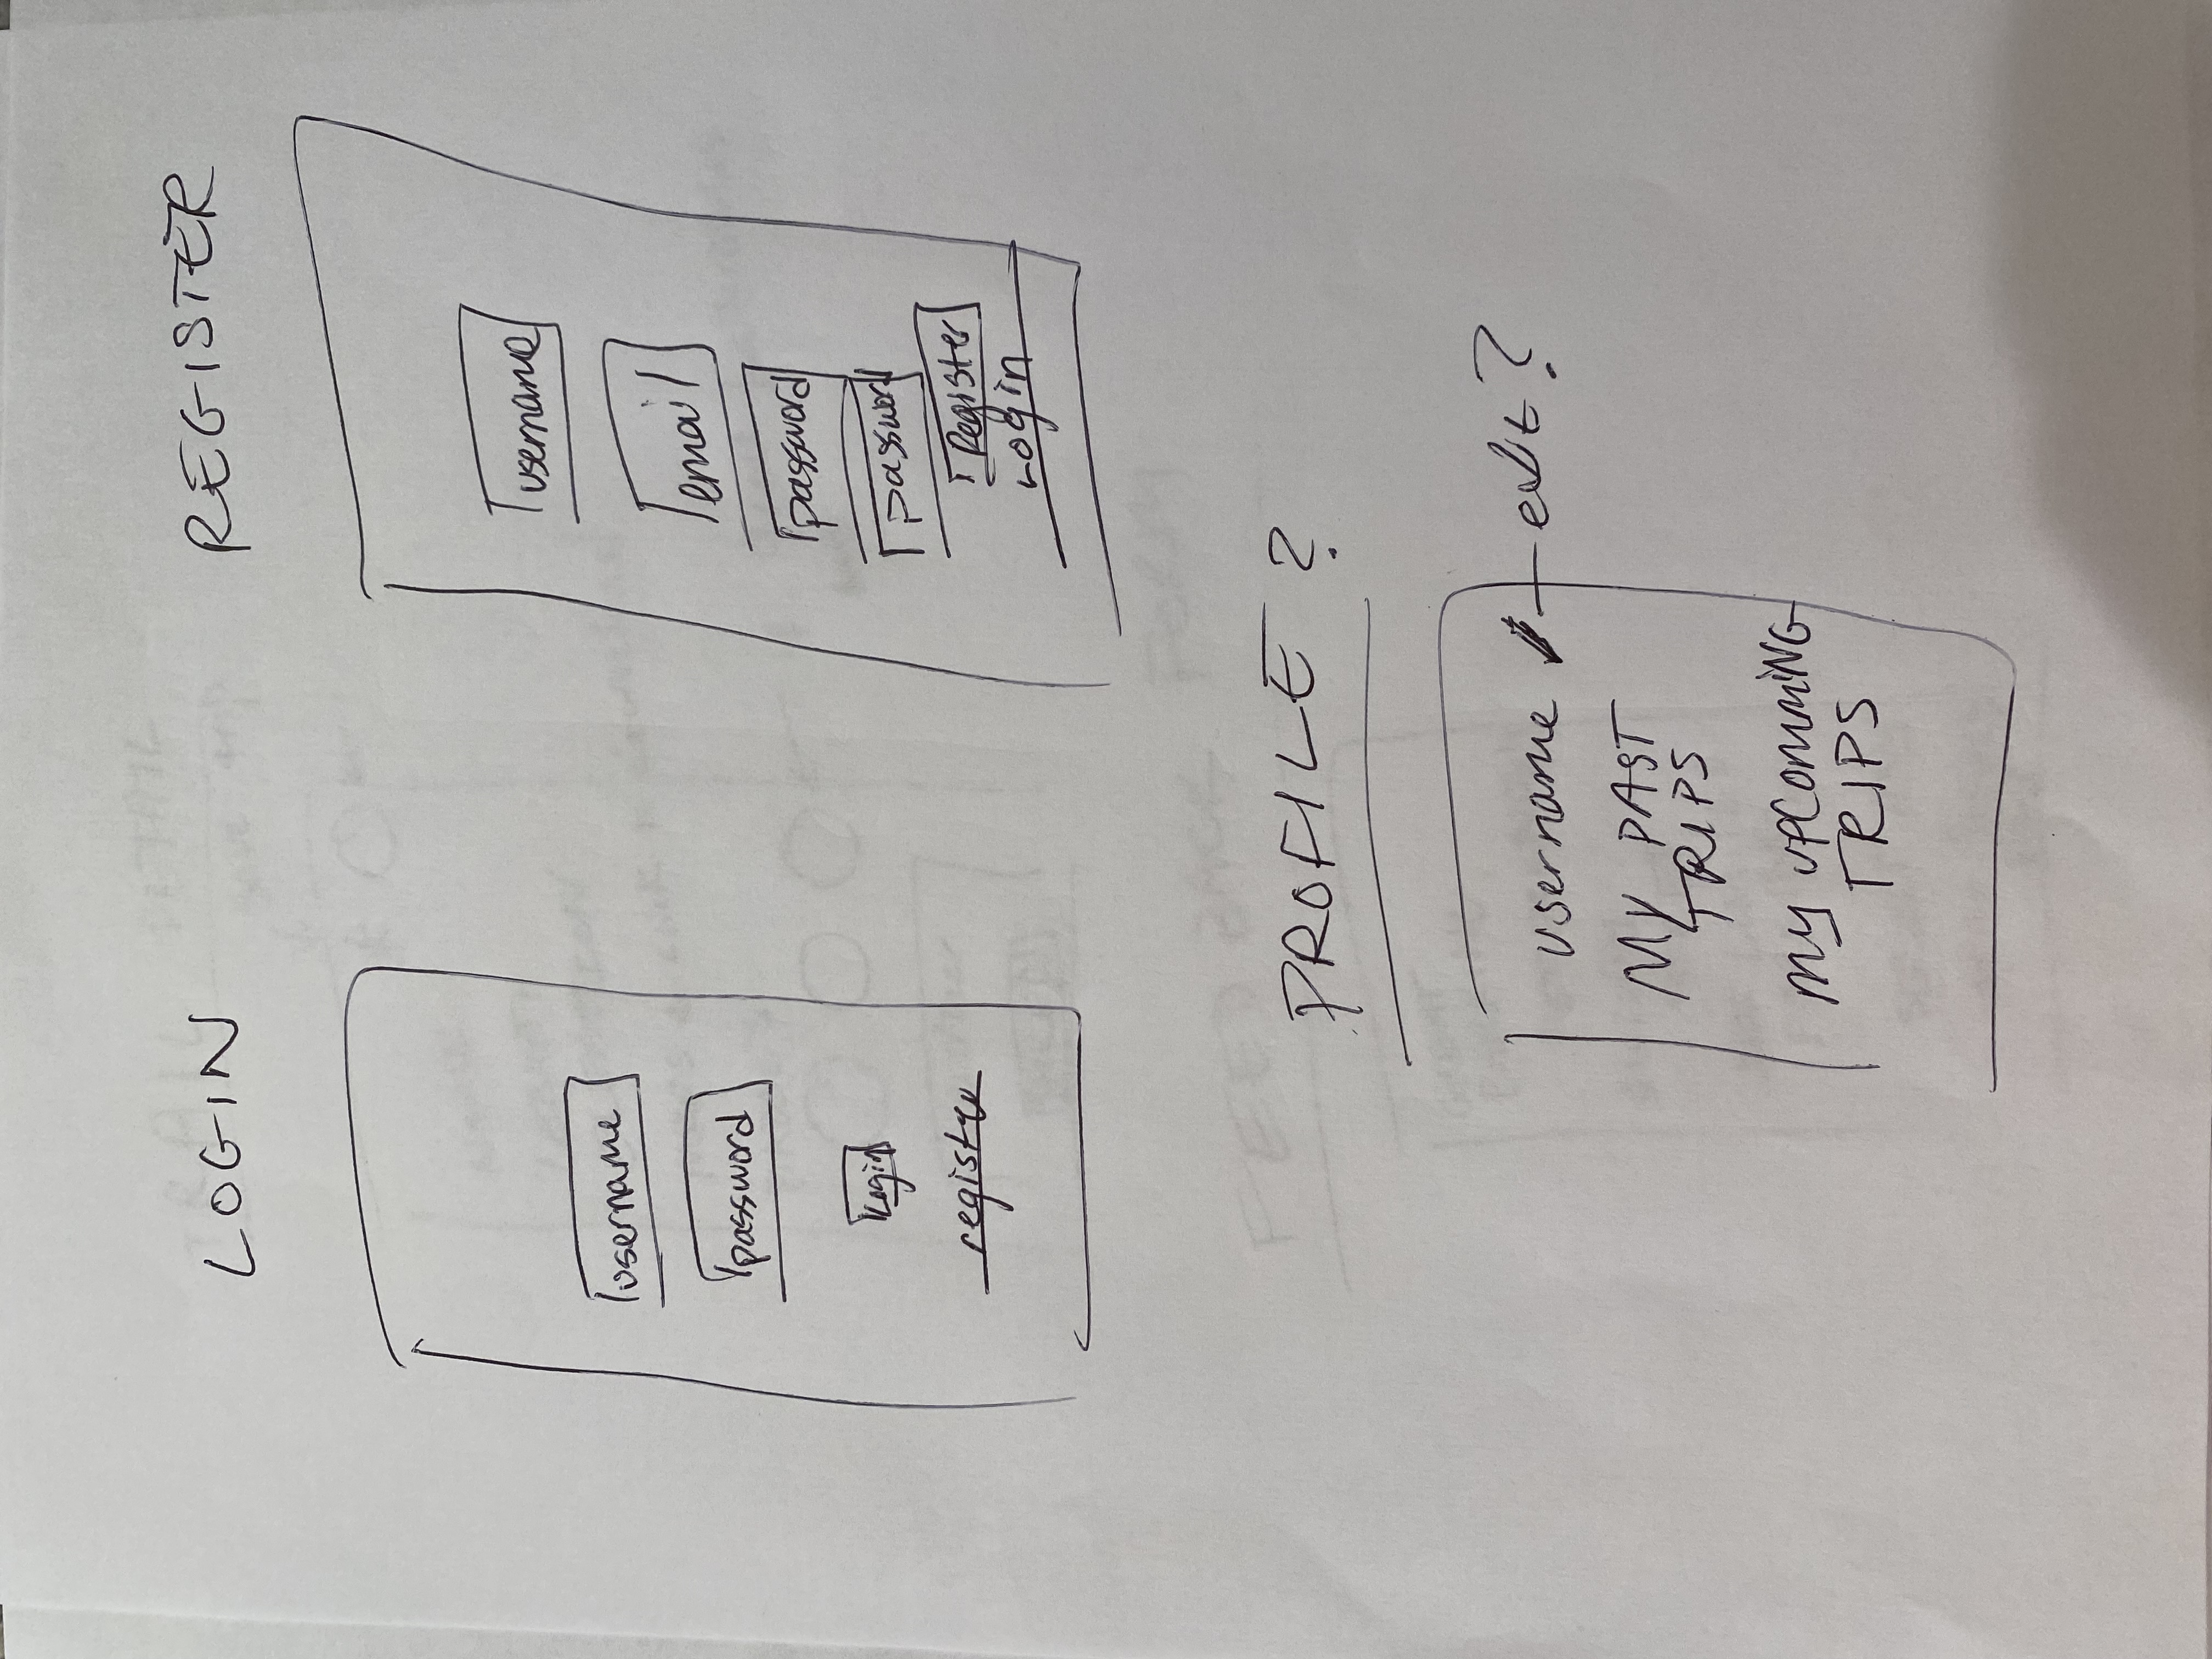 LOGIN
username
password
Login
register
REGISTER
username
email
password
password
Register
Login
PROFILE ?
username — edit?
My PAST
TRIPS
my upcomming
TRIPS